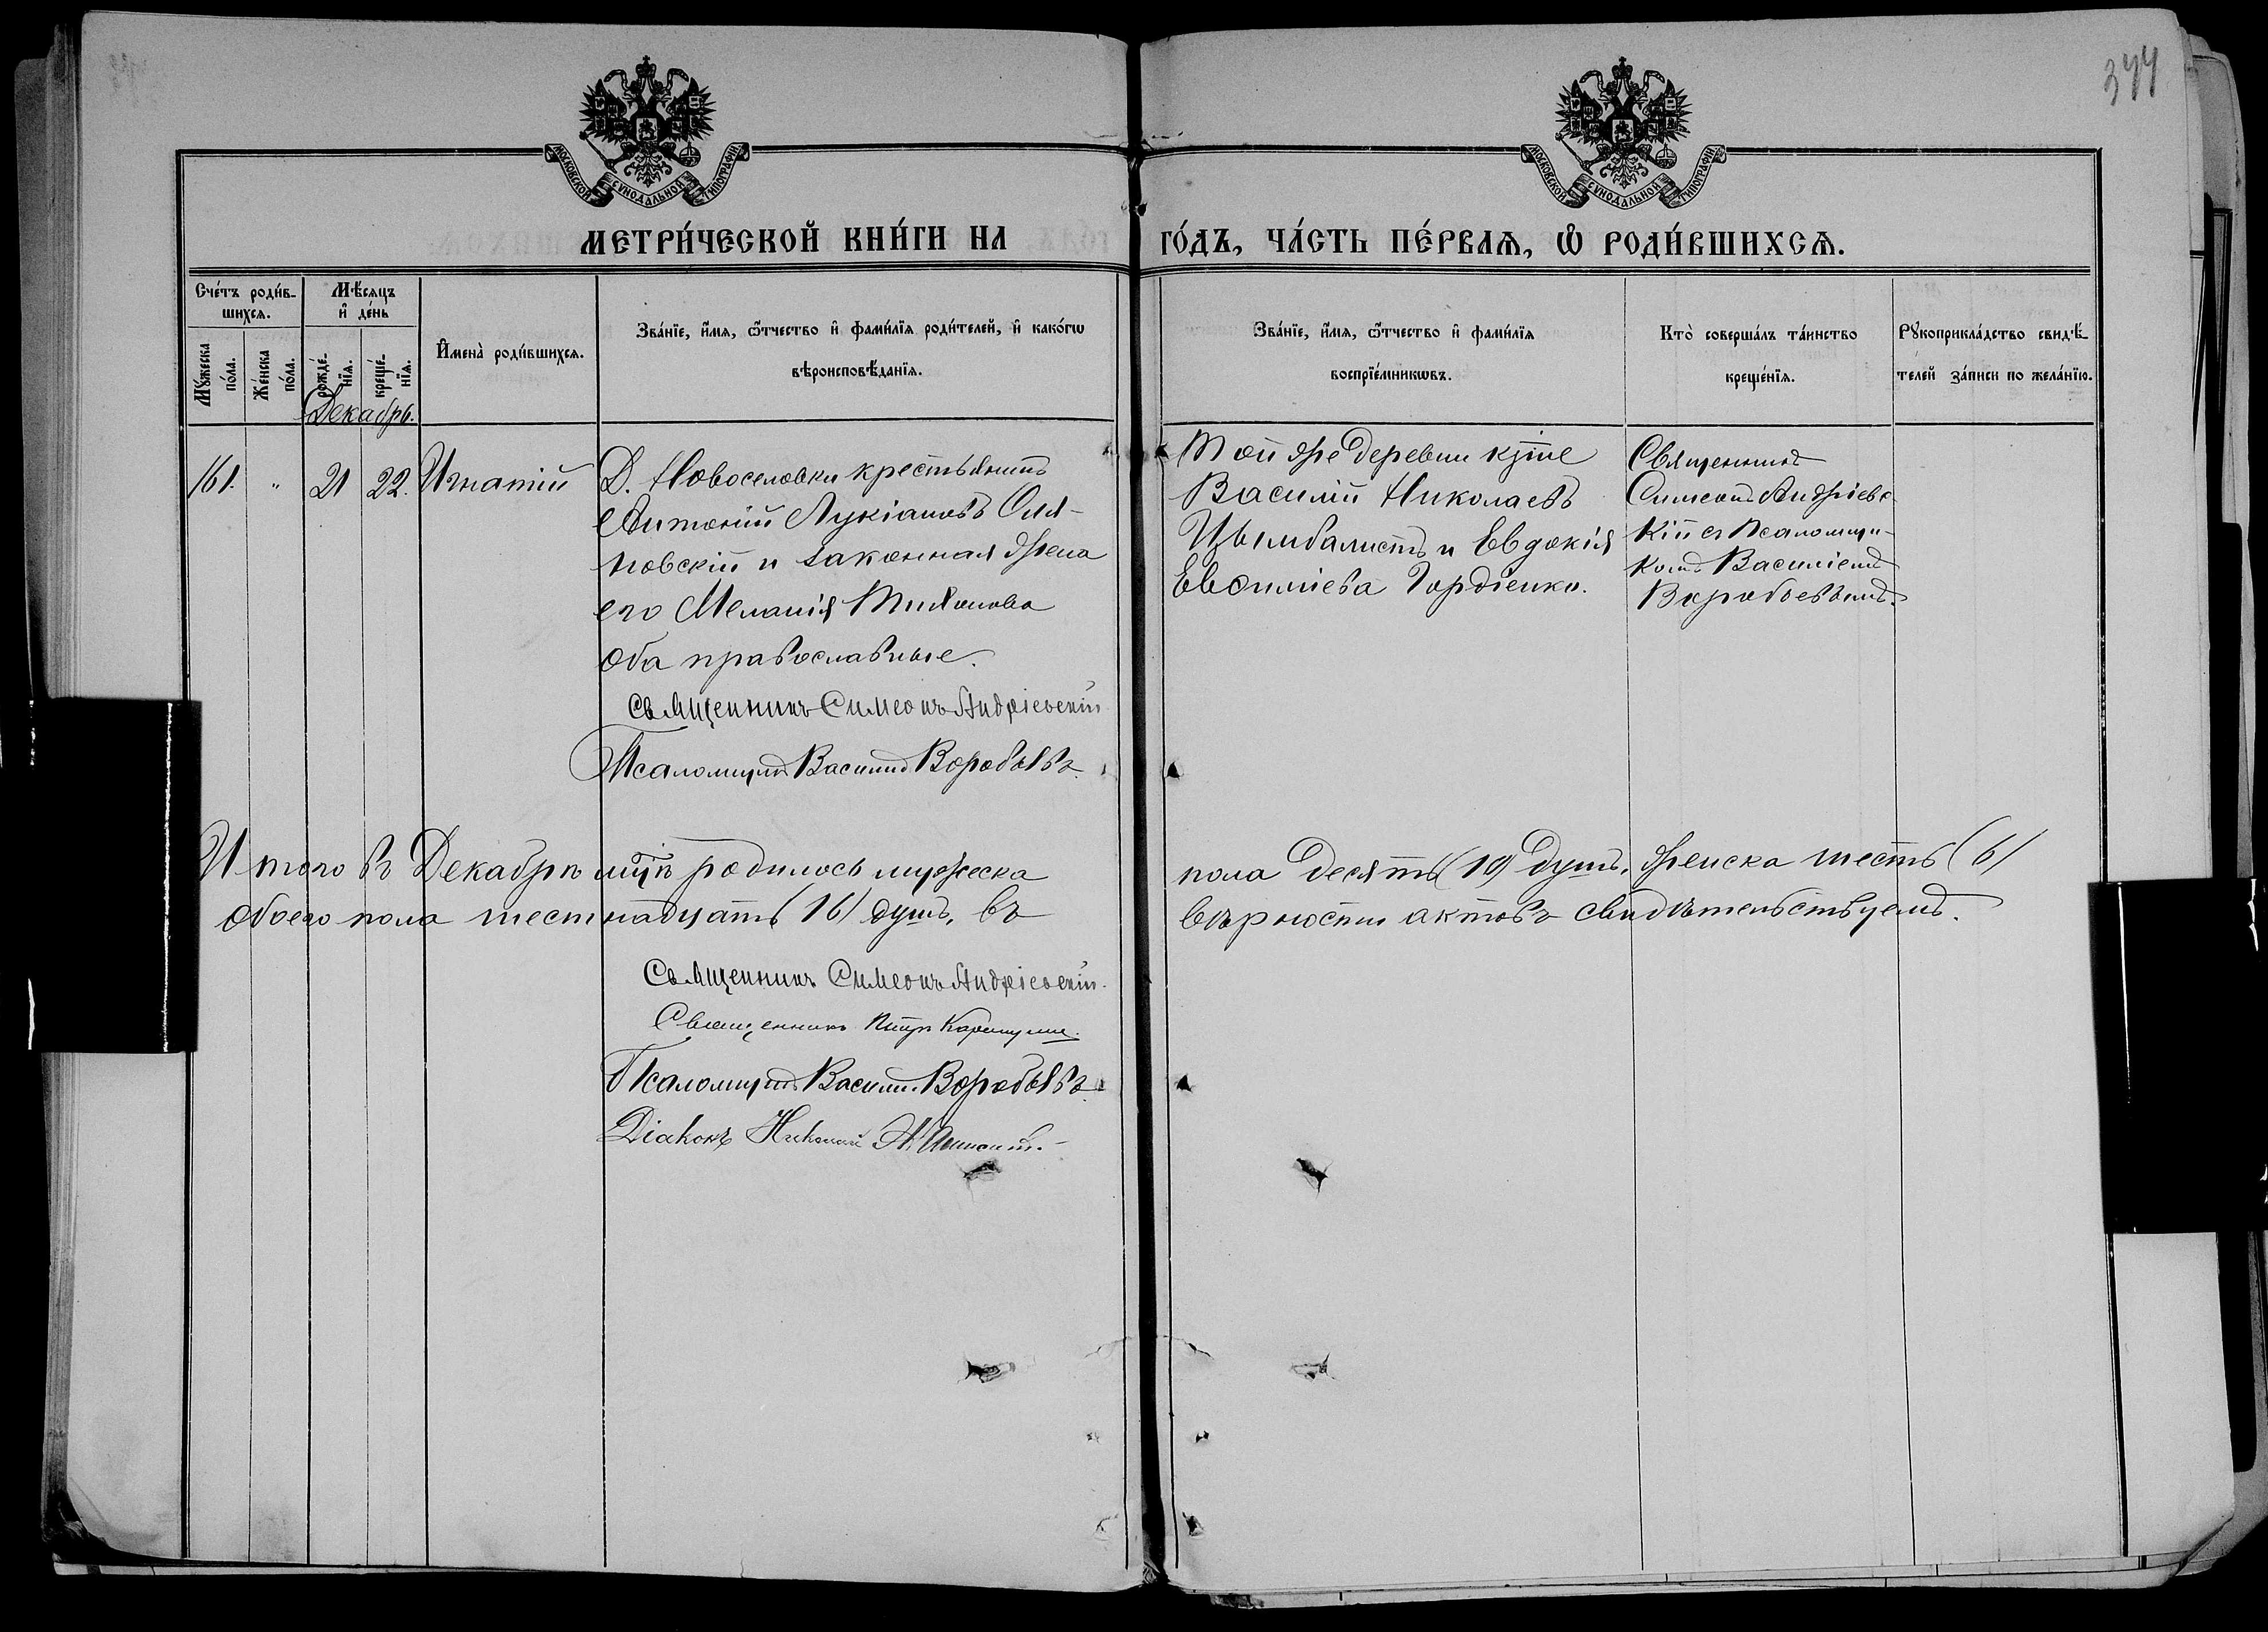 344
МОСКОВСКОЙ СѴНОДАЛЬНОЙ ТИПОГРАФІИ
МОСКОВСКОЙ СѴНОДАЛЬНОЙ ТИПОГРАФІИ
МЕТРИ́ЧЕСКОЙ КНИ́ГИ НА ГО́ДЪ, ЧА́СТЬ ПЕ́РВАѦ, Ѡ РОДИ́ВШИХСѦ.
Сче́тъ роди́в-
шихсѧ.
Мꙋ́жеска
по́ла.
Же́нска
по́ла.
Мѣ́сѧцъ
и҆ де́нь
рожде́-
нїѧ.
креще́-
нїѧ.
Декабрь.
И҆мена̀ роди́вшихсѧ.
Зва́нїе, и҆́мѧ, ѻ҆́тчество и҆ фами́лїѧ роди́телей, и҆ како́гѡ
вѣроисповѣ́данїѧ.
Зва́нїе, и҆́мѧ, ѻ҆́тчество и҆ фами́лїѧ
воспрїе́мникѡвъ.
Кто̀ соверша́лъ та́инство
креще́нїѧ.
Рꙋкоприкла́дство свидѣ́-
телей за́писи по жела́нїю.
161. " 21 22. Игнатій
Д. Новоселовки крестьянинъ
Антоній Лукіановъ Оля-
новскій и законная жена
его Меланія Тихонова
оба православные.
Священникъ Симеонъ Андріевскій
Псаломщикъ Василій Воробьевъ
Той же деревни кр̃не
Василій Николаевъ
Цымбалистъ и Евдокія
Евѳиміева Гордіенко.
Священникъ
Симеонъ Андріевс
кій съ Псаломщи-
комъ Василіемъ
Воробьевымъ.
Итого въ Декабрѣ мц̃ѣ родилось мужеска пола десять (10) душъ, женска шесть (6)
обоего пола шестнадцать (16) душъ, въ вѣрности актовъ свидѣтельствуемъ.
Священникъ Симеонъ Андріевскій.
Священникъ Петръ
Псаломщикъ Василій Воробьевъ
Діаконъ Николай